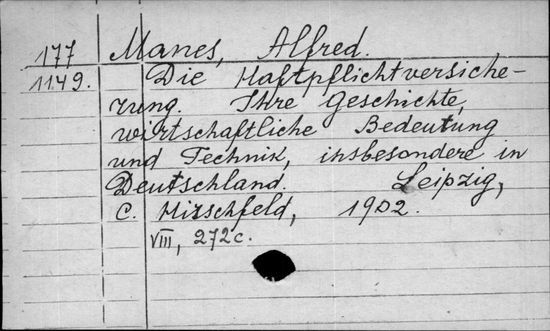 177 Manes, Alfred.
1149. Die Haftpflichtversiche-
rung. Ihre Geschichte,
wirtschaftliche Bedeutung
und Technik, insbesondere in
Deutschland. Leipzig,
C. Hirschfeld, 1902.
VIII, 272c.